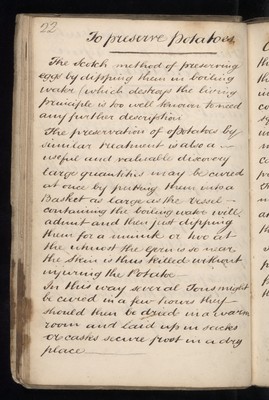 22
To preserve Potatoes
The Scotch method of preserving
eggs by dipping them in boiling
water (which destroys the living
principle is too well known to need
any further description
The preservation of Potatoes by
similar treatment is also a
useful and valuable discovery
large quantities may be cured
at once by putting them into a
Basket as large as the vessel
containing the boiling water will
admit and then just dipping
them for a minute or two at
the utmost the Germ is so near
the skin is thus killed without
injuring the Potatoe
In this way several Tons might
be cured in a few hours they
should then be dried in a warm
room and laid up in sacks
or casks secure frost in a dry
place